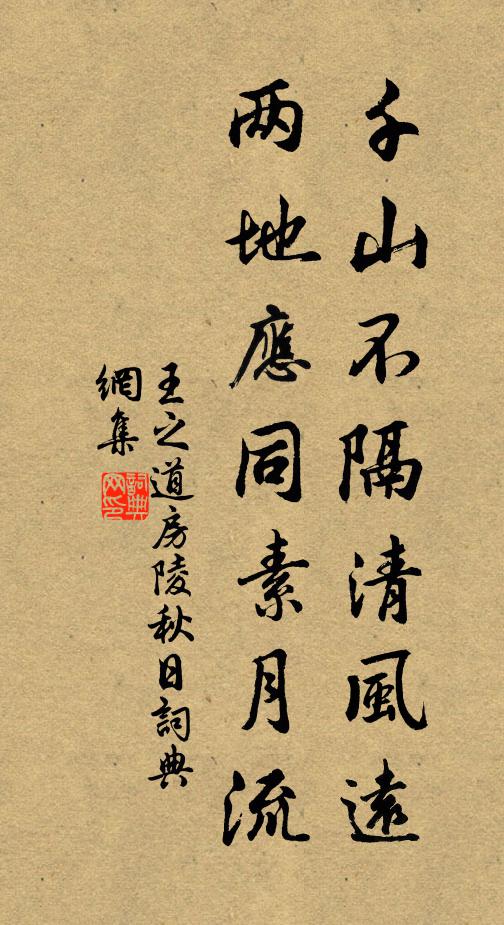 千山不隔清風遠
两地應同素月流
王之道房陵秋日詞典
網集
詞典
网印